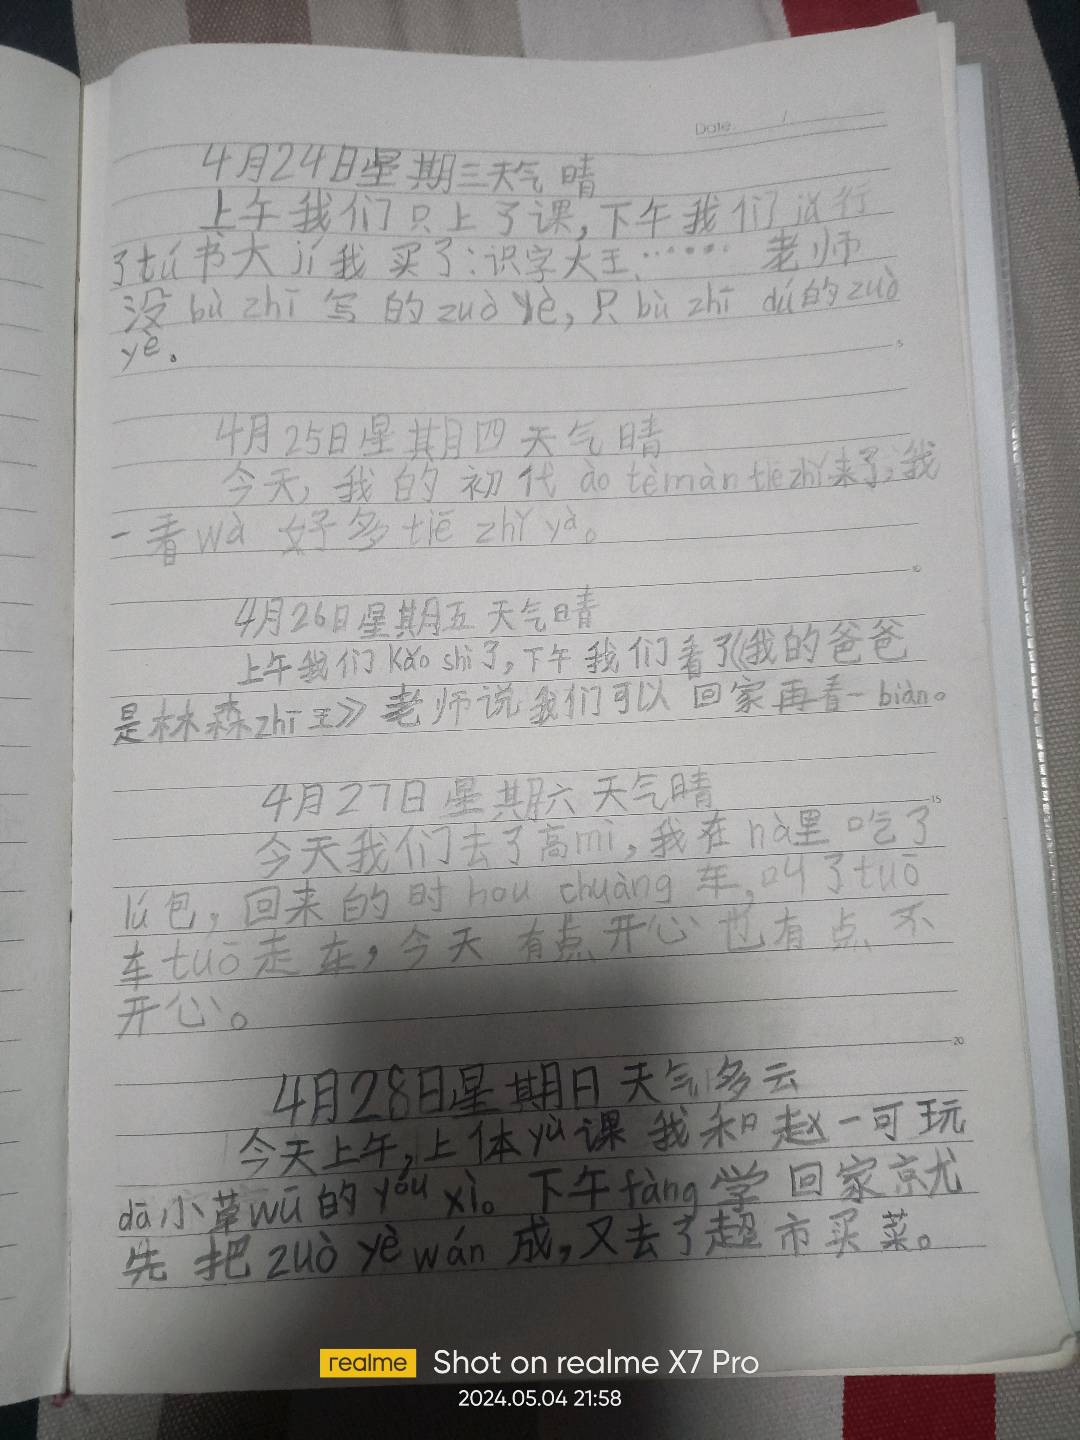 Date: /
4月24日星期三天气 晴
上午我们只上了课,下午我们 行
了tú书大jí我 买了:识字大王、…… 老师
没bù zhī 写 的zuò yè,只bù zhī dú的zuò
yè。
5
4月25日星期四 天气 晴
今天,我的 初代 ào tè màn tiē zhǐ来了,我
一看wà 好多tiē zhǐ yà。
10
4月26日星期五 天气晴
上午我们kǎo shì了,下午 我们看了《我的爸爸
是林森zhī王》老师说我们可以 回家再看一biàn。
4月27日 星期六 天气晴
15
今天我们去了高mì,我在nà里 吃了
lǘ包,回来的时hou chuàng车,叫了tuō
车tuō走 车,今天 有点开心 也有点不
开心。
20
4月28日星期日 天气多云
今天上午,上体yù课 我和赵一可玩
dā小草wū的yóu xì。下午fàng学 回家京尤
先 把zuò yè wán 成,又去了超市买菜。
realme Shot on realme X7 Pro
2024.05.04 21:58